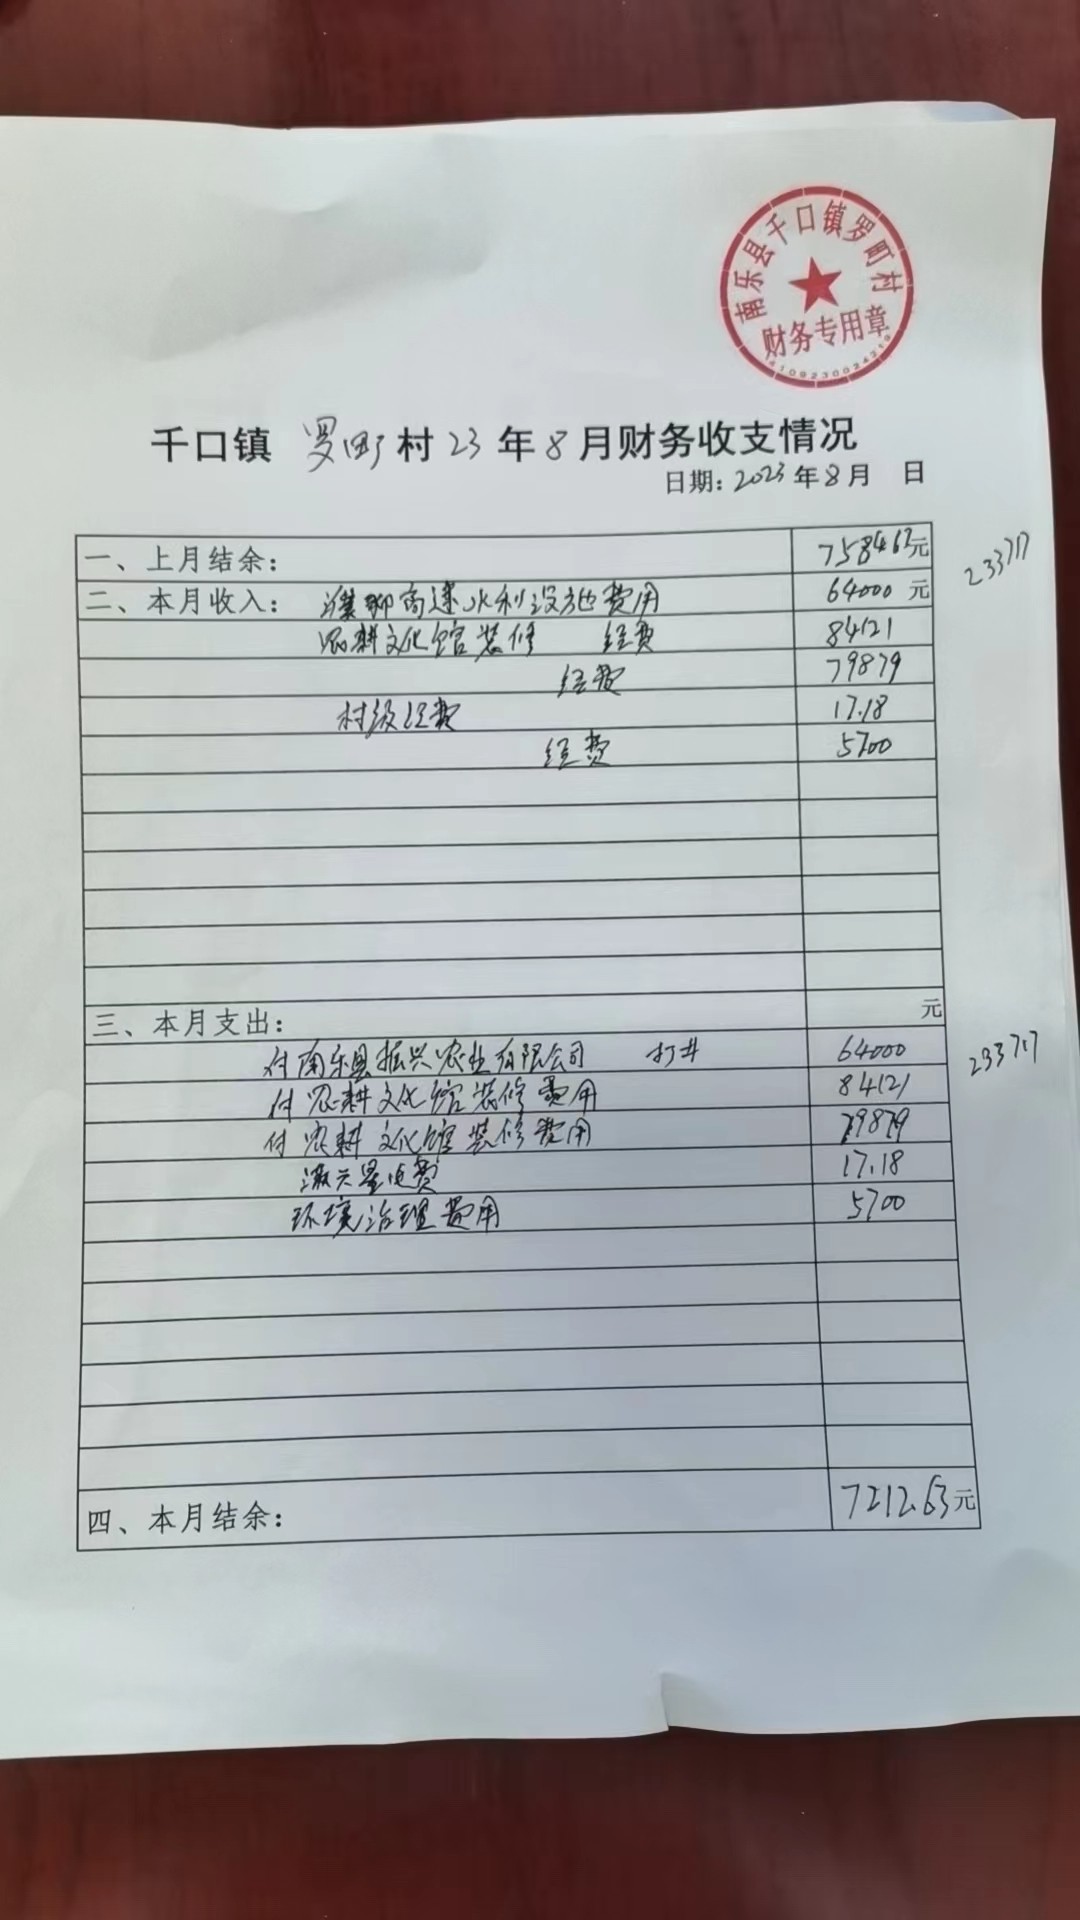 南乐县千口镇罗町村
财务专用章
4109230024219
千口镇 罗町村23年8月财务收支情况
日期:2023年8月 日
一、上月结余: 758463元
233717
二、本月收入: 濮聊高速水利设施费用 64000元
农耕文化馆装修 经费 84121
经费 79879
村级经费 17.18
经费 5700
三、本月支出: 元
付南乐县振兴农业有限公司 打井 64000
233717
付农耕文化馆装修费用 84121
付农耕文化馆装修费用 79879
电费 17.18
环境治理费用 5700
四、本月结余: 7212.63元